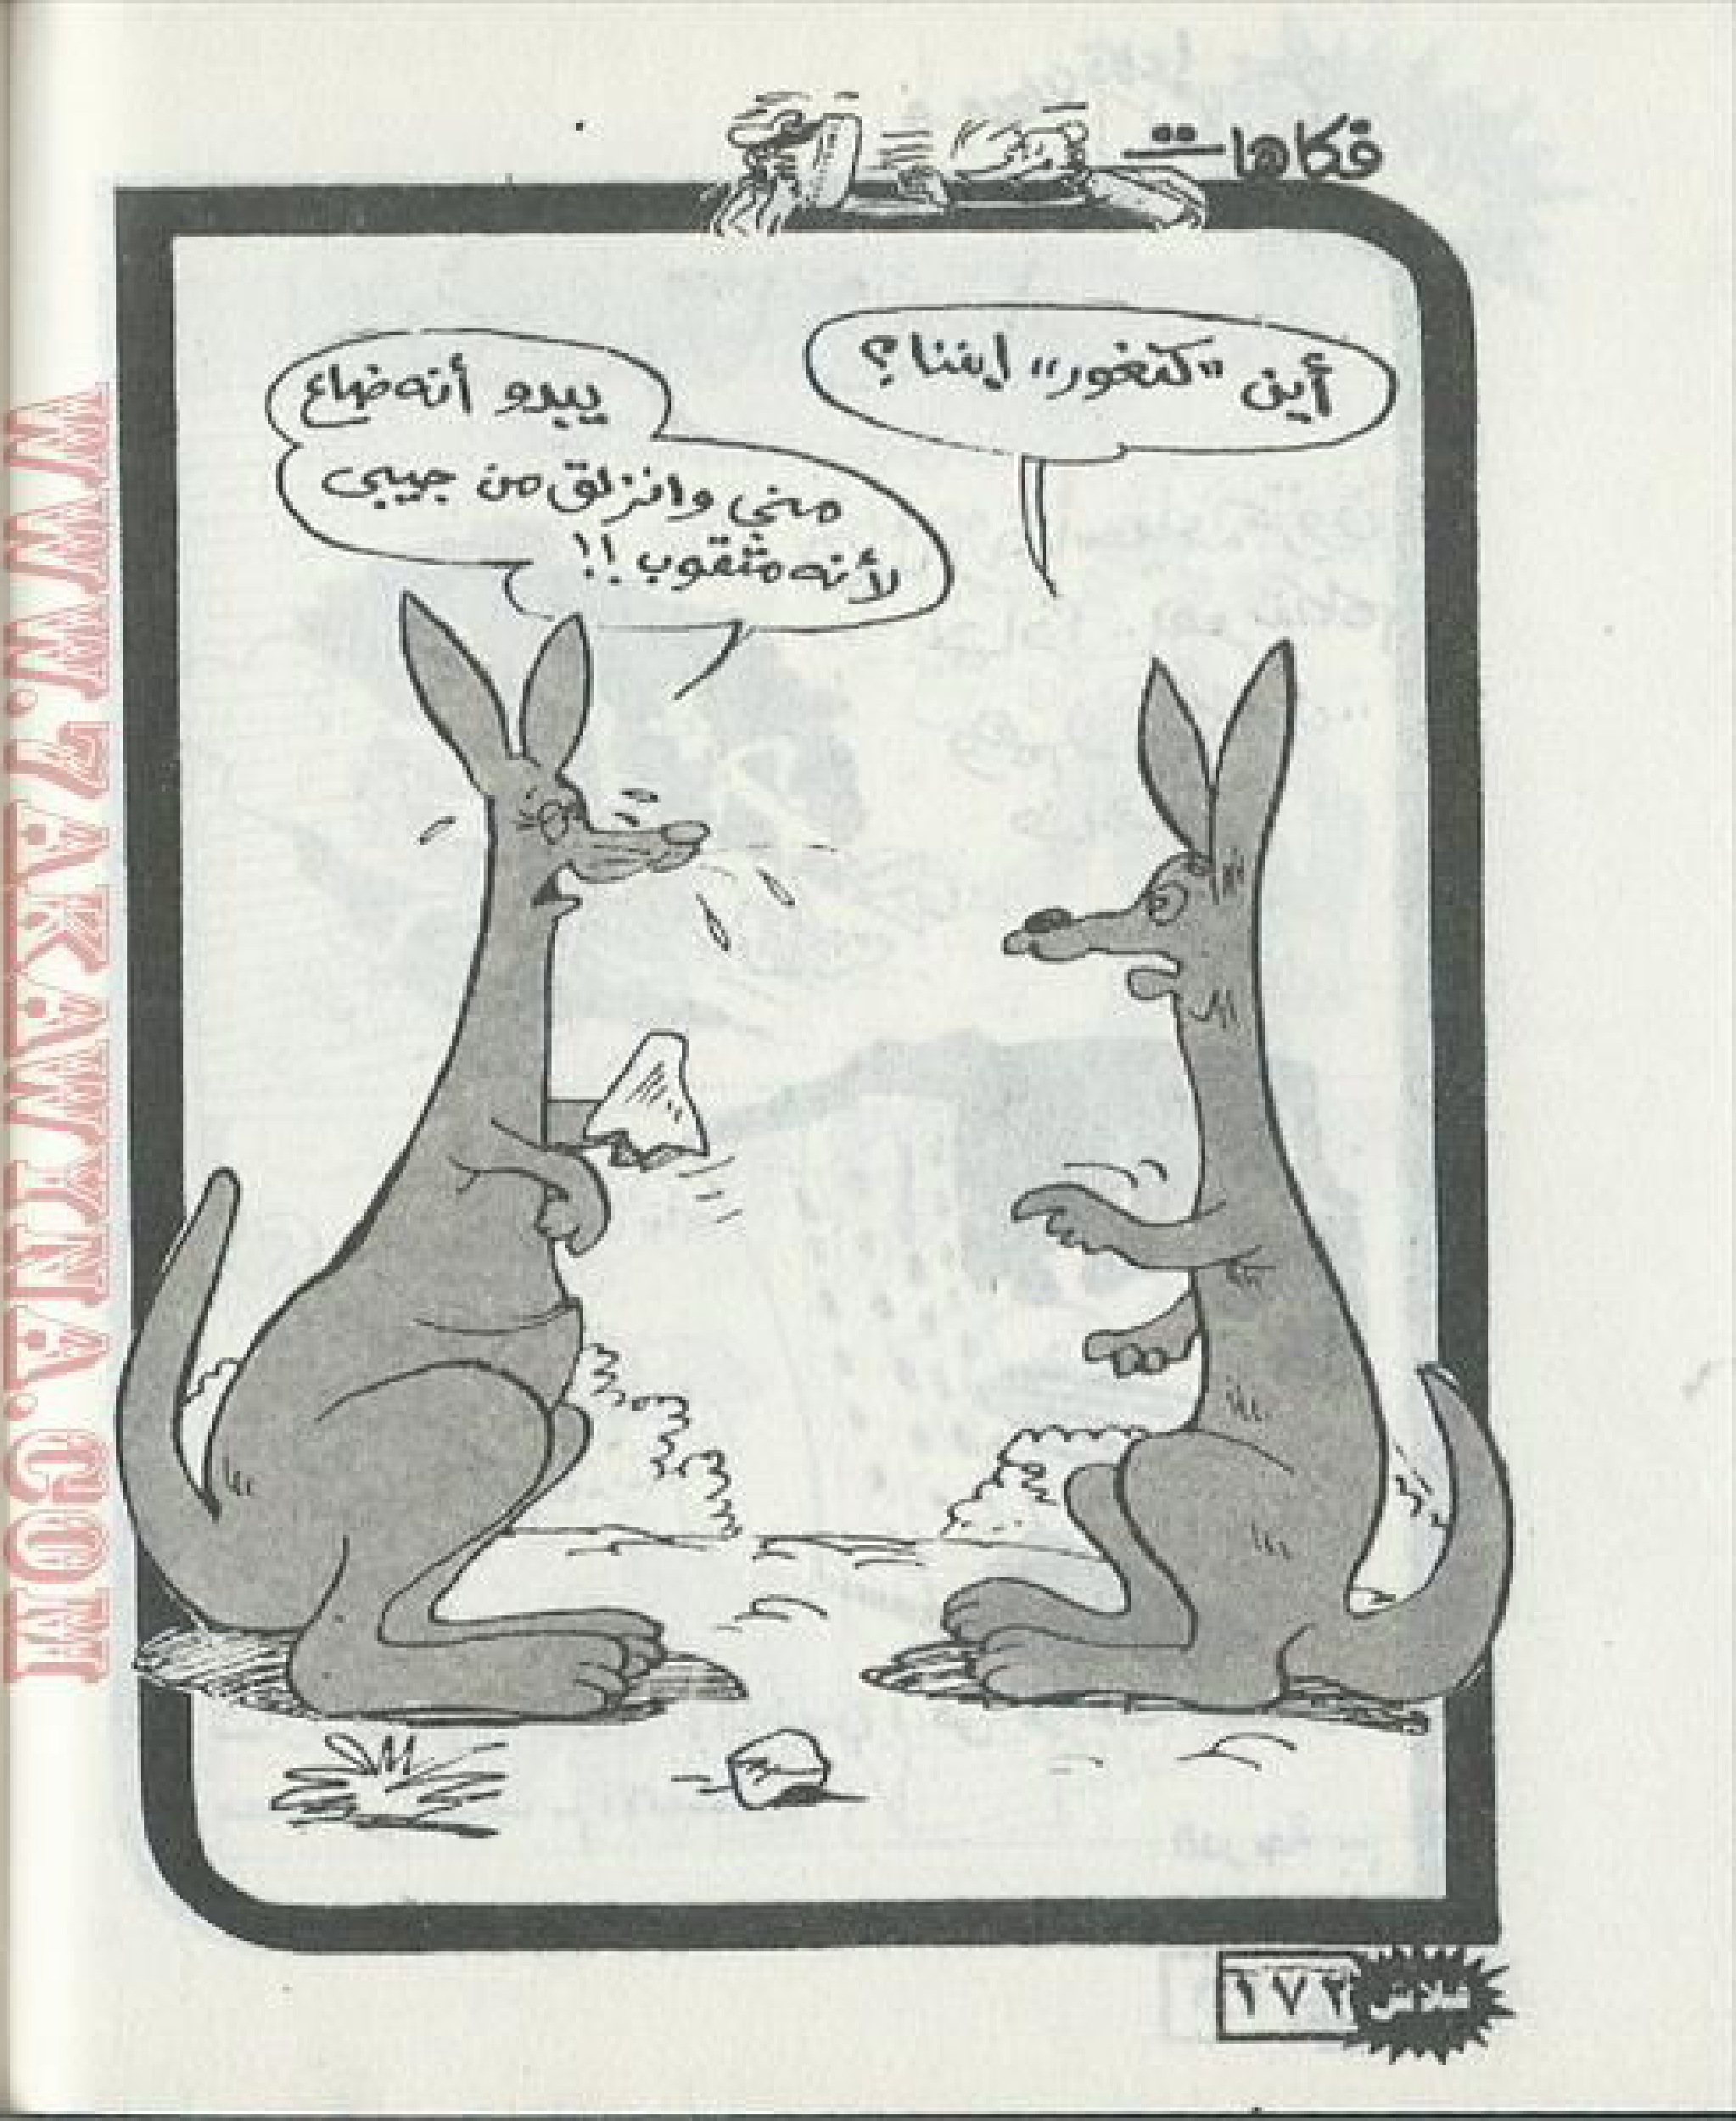 فكاهات
أين "كنغور" إبننا؟
يبدو أنه ضاع
مني وانزلق من جيبي
لأنه مثقوب !!
WWW.7AKAWYNA.COM
فلاش